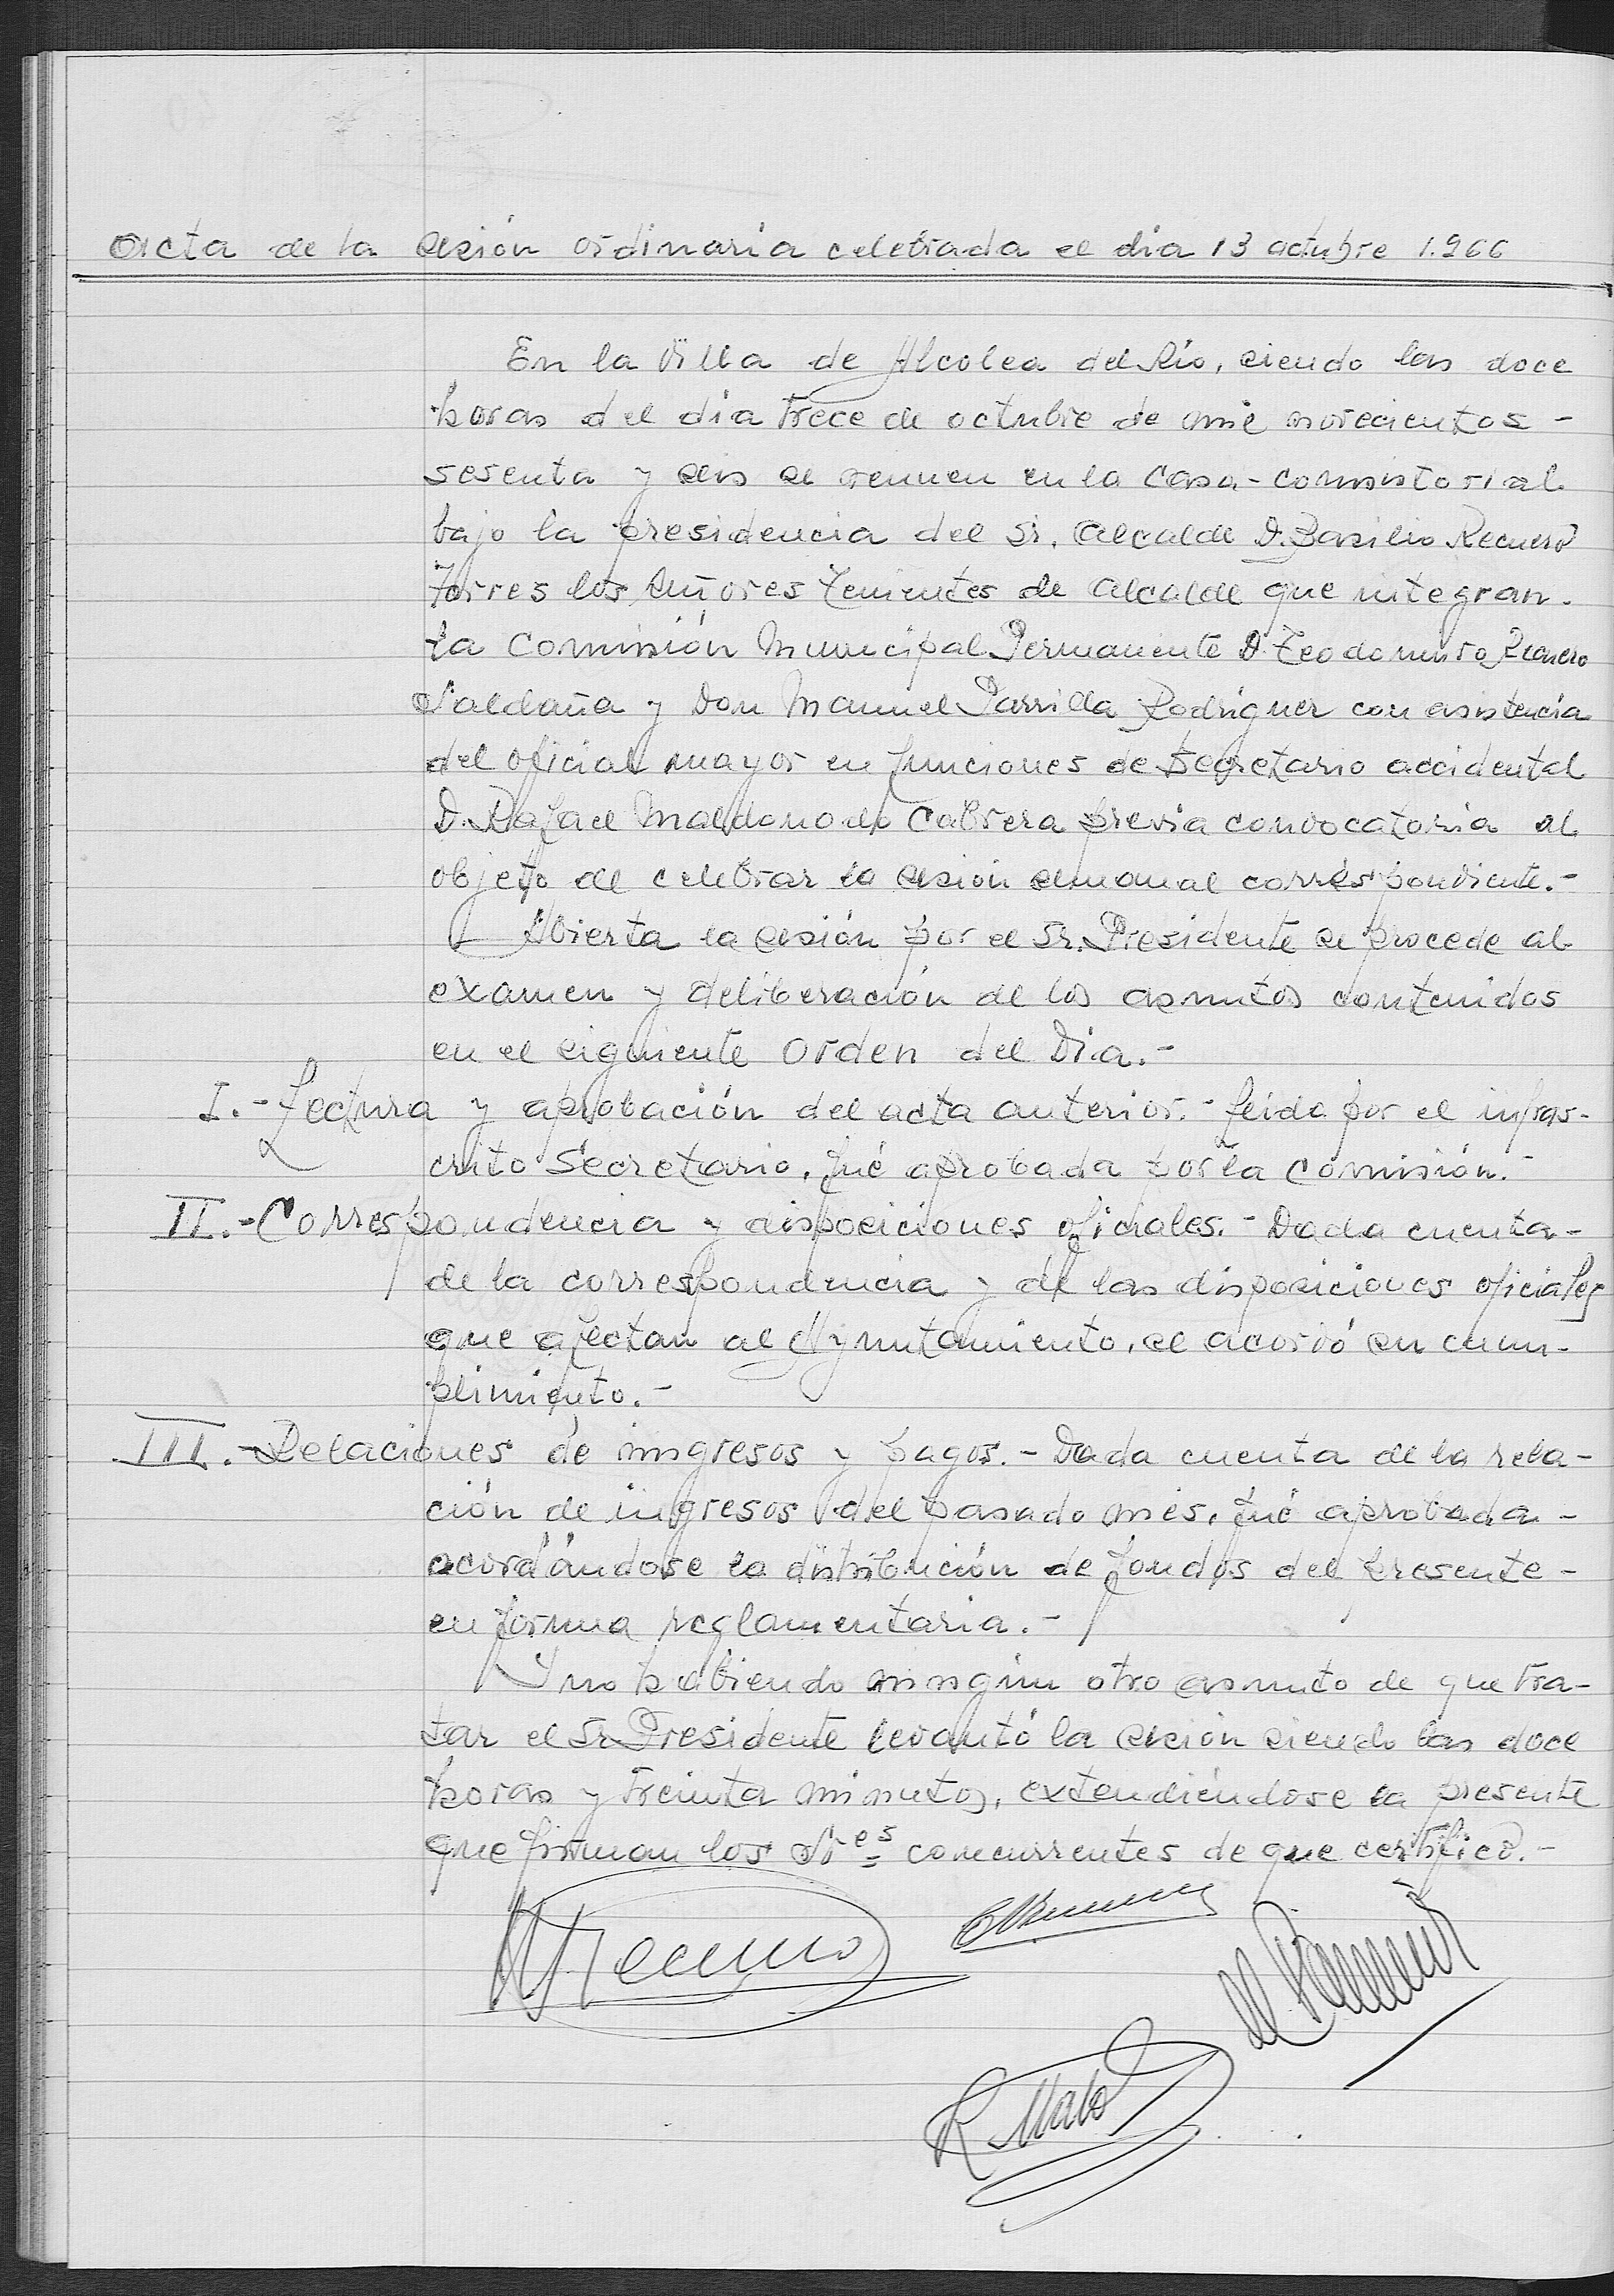 Acta de la sesión ordinaria celebrada el dia 13 octubre 1.966
En la Villa de Alcolea del Río, siendo las doce
horas del dia trece de octubre de mil novecientos -
sesenta y seis se reunen en la Casa-Consistorial
bajo la presidencia del Sr. Alcalde D. Basilio Recuero
Torres los señores tenientes de Alcalde que integran
la Comisión Municipal Permanente D. Teodomiro Recuero
Saldaña y Don Manuel Parrilla Rodriguez con asistencia
del oficial mayor en funciones de Secretario accidental
D. Rafael Maldonado Cabrera previa convocatoria al
objeto de celebrar la sesión semanal correspondiente.-
Abierta la sesión por el Sr. Presidente se procede al
examen y deliberación de los asuntos contenidos
en el siguiente Orden del Dia.-
I.- Lectura y aprobación del acta anterior.- Leida por el infras-
crito Secretario, fué aprobada por la Comisión.-
II.- Correspondencia y disposiciones oficiales.- Dada cuenta -
de la correspondencia y de las disposiciones oficiales
que afectan al Ayuntamiento, se acordó su cum-
plimiento.-
III.- Relaciones de ingresos y pagos.- Dada cuenta de la rela-
ción de ingresos del pasado mes, fué aprobada -
acordándose la distribución de fondos del presente -
en forma reglamentaria.-
Y no habiendo ningún otro asunto de que tra-
tar el Sr. Presidente levantó la sesión siendo las doce
horas y treinta minutos, extendiéndose la presente
que firman los Sres concurrentes de que certifico.-
Recuero
R. Maldo